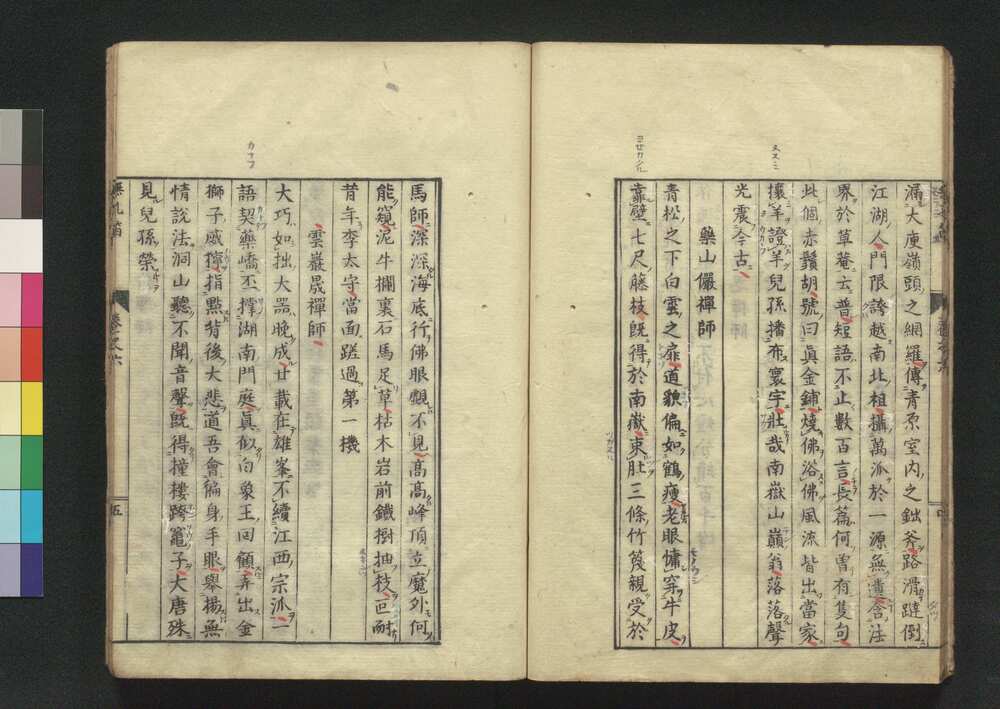 漏大庾嶺頭之網羅傳青原室內之鈯斧路滑躂倒
江湖人門限誇越南北祖攝萬派於一源無遺含注
界於草菴去普短語不止數百言長篇何曾有隻句
此個赤鬚胡號曰眞金鋪燒佛浴佛風流皆出當家
攘羊證羊兒孫播布寰宇壯哉南嶽山巔翁落落聲
光震今古
藥山儼禪師
青松之下白雲之扉道貌偏如鶴瘦老眼慵穿牛皮
靠壁七尺藤枝既得於南嶽東肚三條竹篾親受於
馬師深深海底行佛眼覷不見高高峰頂立魔外何
能窺泥牛攔裏石馬足草枯木岩前鐵樹抽枝叵耐
昔年李太守當面蹉過第一機
雲巖晟禪師
大巧如拙大器晚成廿載在雄峯不續江西宗派一
語契藥嶠丕撑湖南門庭眞似白象王回顧弄出金
獅子威獰指點背後大悲道吾會徧身手眼舉揚無
情說法洞山聽不聞音聲既得撞樓跨竈子大唐殊
見兒孫榮
無孔笛
卷之六
五
カナフ
ヌスミ
ヨセカヽル